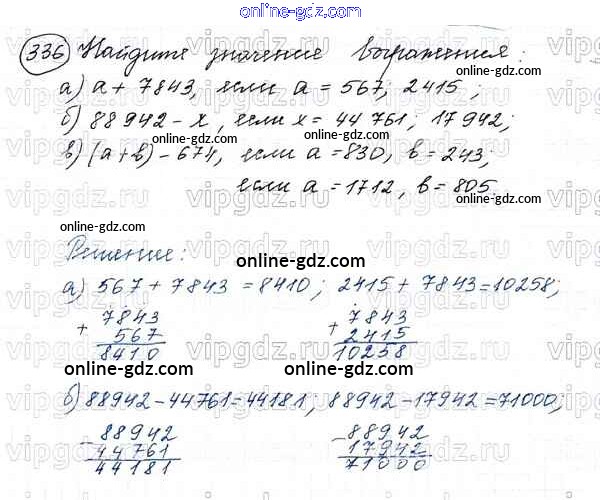 online-gdz.com
336 Найдите значение выражения:
а) a + 7843, если a = 567, 2415;
online-gdz.com
б) 88942 - x, если x = 44 761; 17942;
online-gdz.com
в) (a+в) - 674, если a = 830, в = 243;
если a = 1712, в = 805
online-gdz.com
Решение:
online-gdz.com
а) 567 + 7843 = 8410; 2415 + 7843 = 10258;
7843 7843
+ 567 + 2415
8410 10258
online-gdz.com online-gdz.com
б) 88942 - 44761 = 44181; 88942 - 17942 = 71000;
88942 88942
- 44761 - 17942
44181 71000
vipgdz.ru